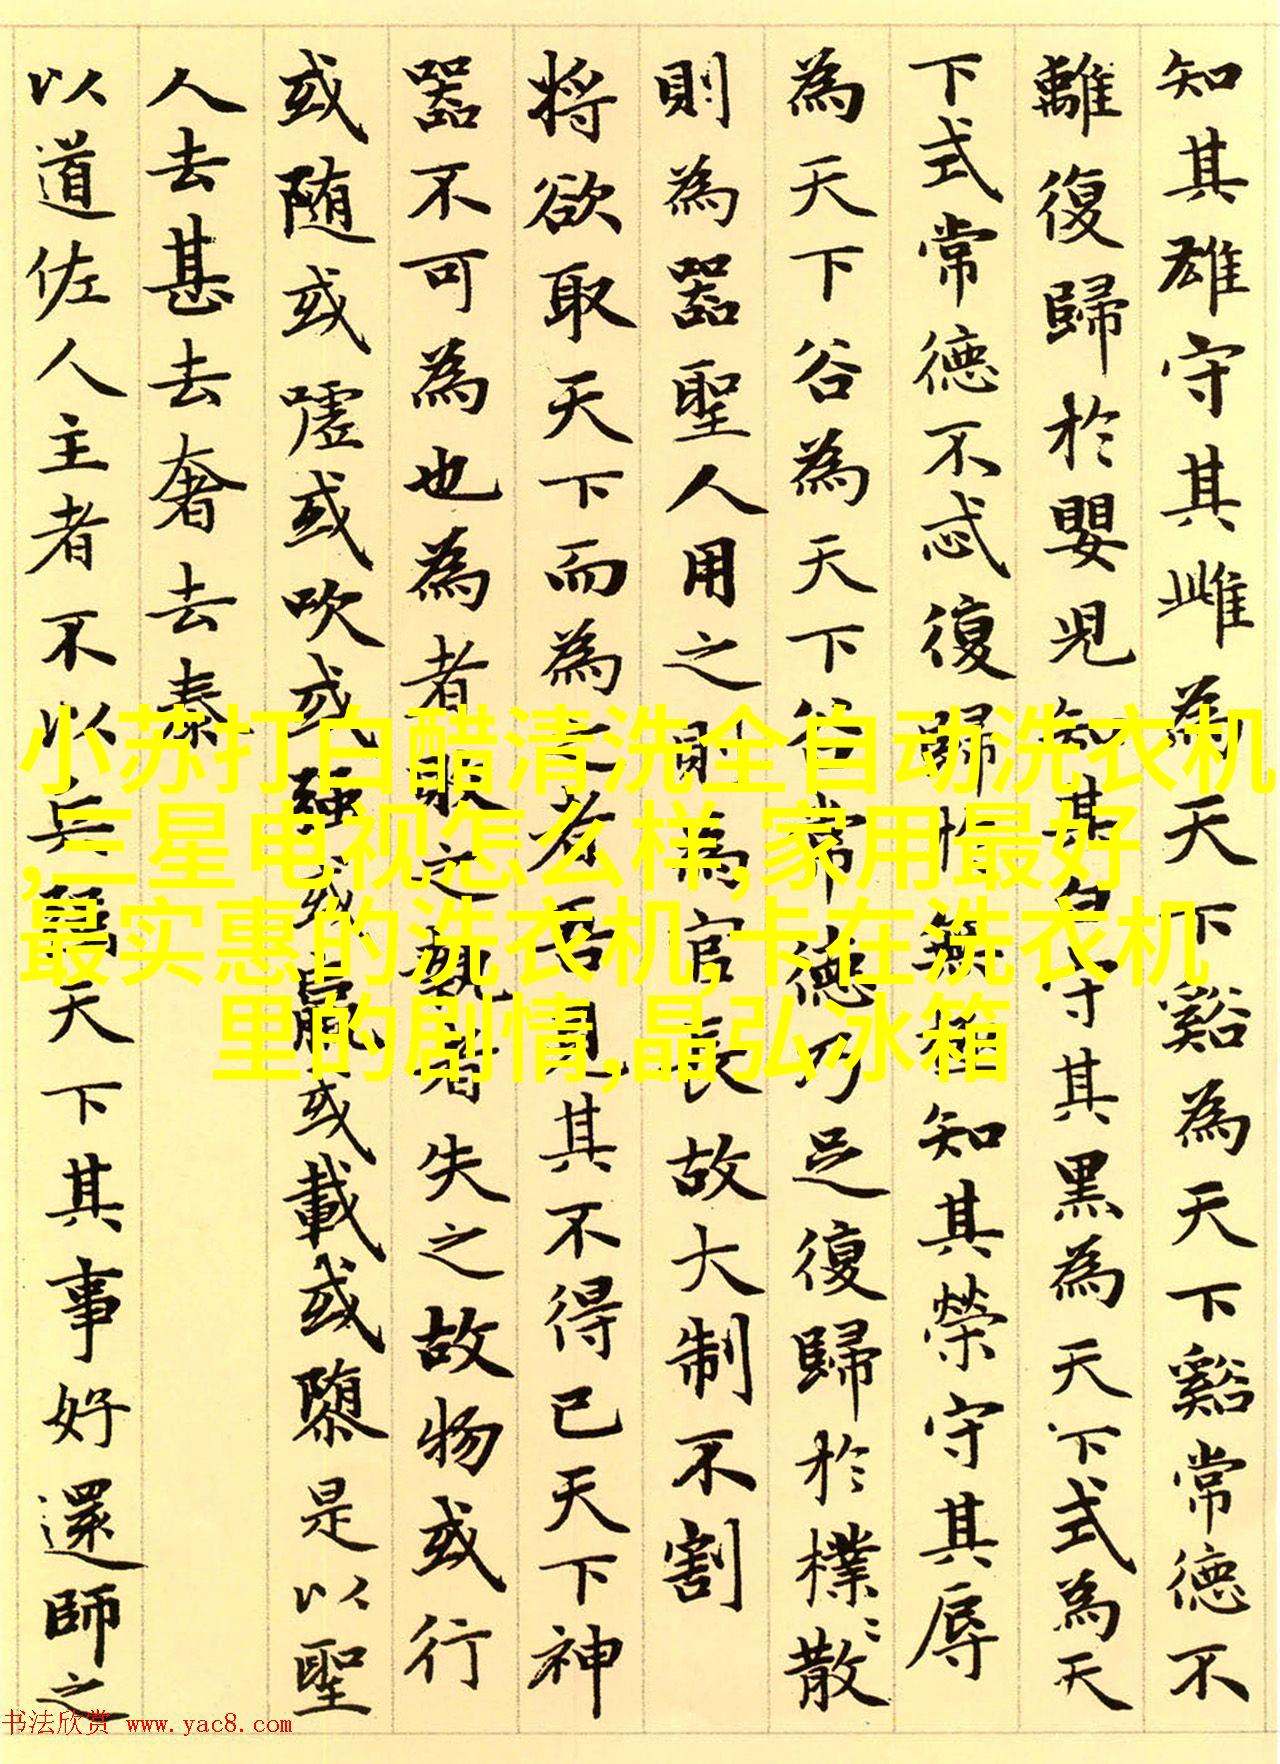 知其雄守其雌為天下谿為天下谿常德不
離復歸於嬰兒知其白守其黑為天下式為天
下式常德不忒復歸於無極知其榮守其辱
為天下谷為天下谷常德乃足復歸於樸〻散
則為器聖人用之則為官長故大制不割
将欲取天下而為之者吾見其不得已天下神
器不可為也為者敗之執者失之故物或行
或随或嘘或吹或強或羸或載或隳是以聖
人去甚去奢去泰
以道佐人主者不以兵強天下其事好還師之
小苏打白醋清洗全自动洗衣机
,三星电视怎么样,家用最好
最实惠的洗衣机,卡在洗衣机
里的剧情,晶弘冰箱
书法欣赏 www.yac8.com